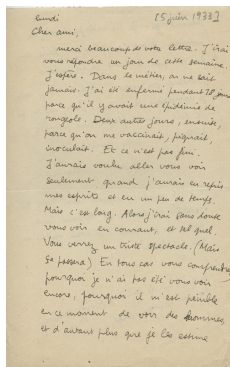 lundi [5 juin 1933]
Cher ami,
merci beaucoup de votre lettre. J'irai
vous répondre un jour de cette semaine.
J'espère. Dans le métier, on ne sait
jamais. J'ai été enfermé pendant 18 jours
parce qu'il y avait une épidémie de
rougeole. Deux autres jours, ensuite,
parce qu'on me vaccinait, piquait
inoculait. Et ce n'est pas fini.
J'aurais voulu aller vous voir
seulement quand j'aurais eu repris
mes esprits et eu un peu de temps.
Mais c'est long. Alors j'irai sans doute
vous voir en courant, et tel quel.
Vous verrez un triste spectacle. (Mais
ça passera) En tous cas vous comprendrez
pourquoi je n'ai pas été vous voir
encore, pourquoi il m'est pénible
en ce moment de voir des hommes,
et d'autant plus que je les estime